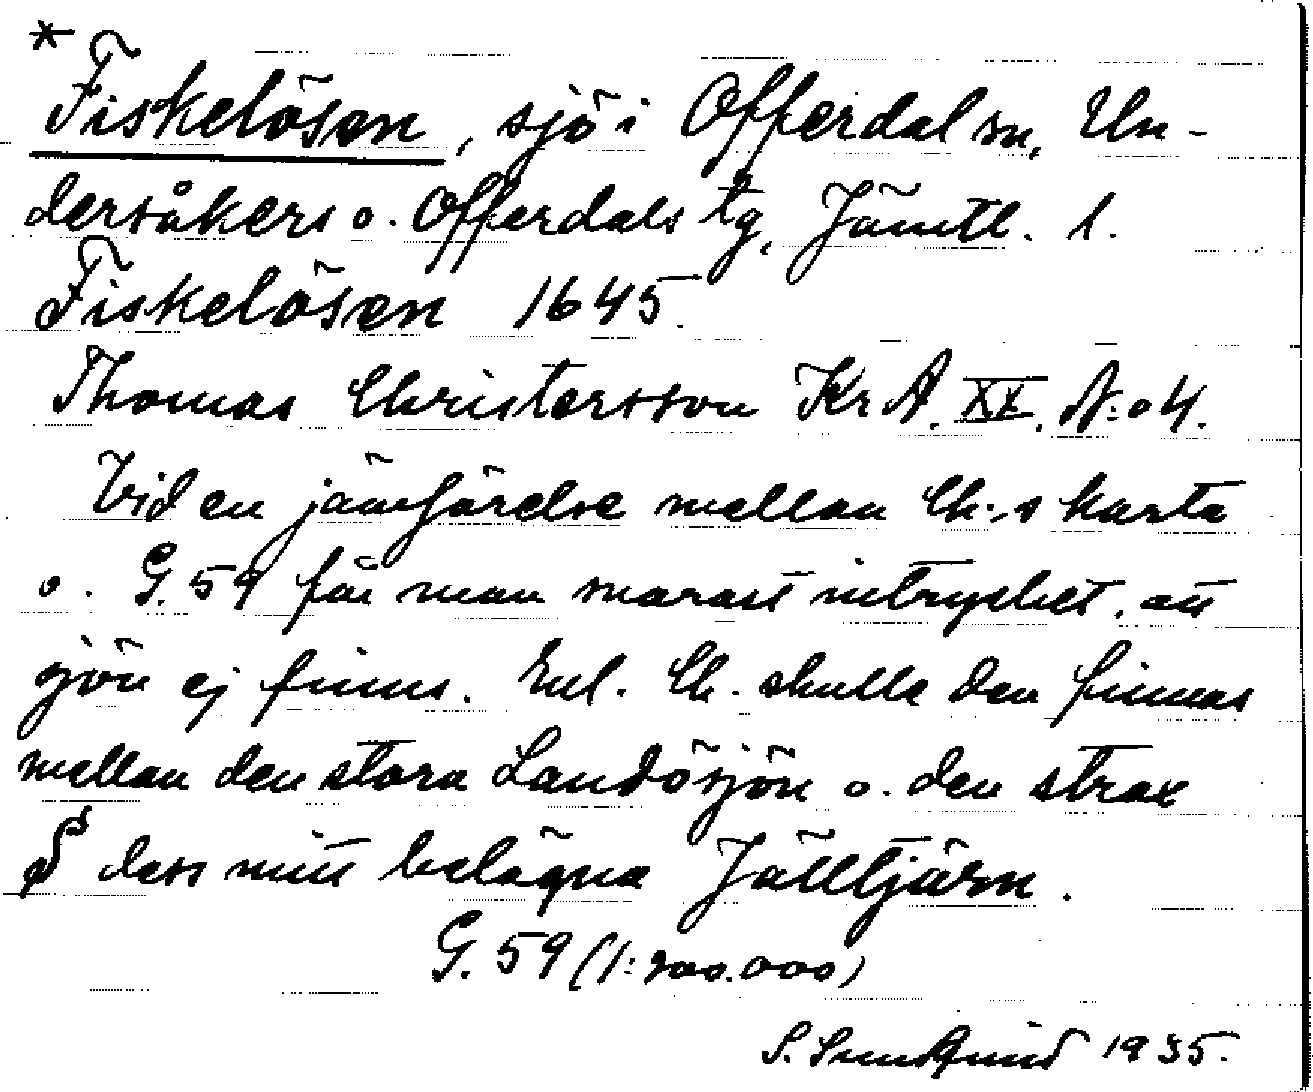 * Fiskelösen, sjö i Offerdal sn, Un-
dersåkers o. Offerdals tg, Jämtl. l.
Fiskelösen 1645.
Thomas Christersson Kr A. XX. N:o 4.
Vid en jämförelse mellan Ch:s karta
o. G. 59 får man snarast intrycket, att
sjön ej finns. Enl. Ch. skulle den finnas
mellan den stora Landösjön o. den strax
S dess mitt belägna Jälltjärn.
G. 59 (1:200.000)
S. Sundqvist 1935.